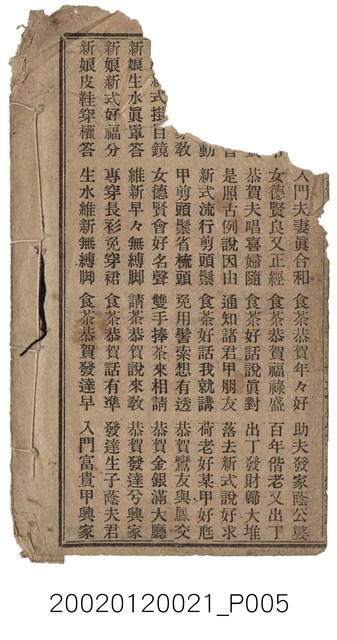 入門夫妻真合和 食茶恭賀年々好 助夫發家蔭公婆
女德賢良又正經 食茶恭賀福祿盛 百年偕老又出丁
恭賀夫唱喜婦隨 食茶好話說真對 出丁發財歸大堆
是照古例說因由 通知諸君甲朋友 落去新式說好求
動 新式流行剪頭鬃 食茶好話我就講 荷老好某甲好尪
敎 甲剪頭鬃省梳頭 免用髻索想有透 恭賀鸞友與鳳交
式掛目鏡 女德賢會好名聲 雙手捧茶來相請 恭賀金銀滿大廳
新娘生水真罩答 維新早々無縛脚 請茶恭賀說來敎 恭賀發達兮興家
新娘新式好福分 專穿長衫免穿裙 食茶恭賀話有準 發達生子蔭夫君
新娘皮鞋穿權答 生水維新無縛脚 食茶恭賀發達早 入門富貴甲興家
20020120021_P005